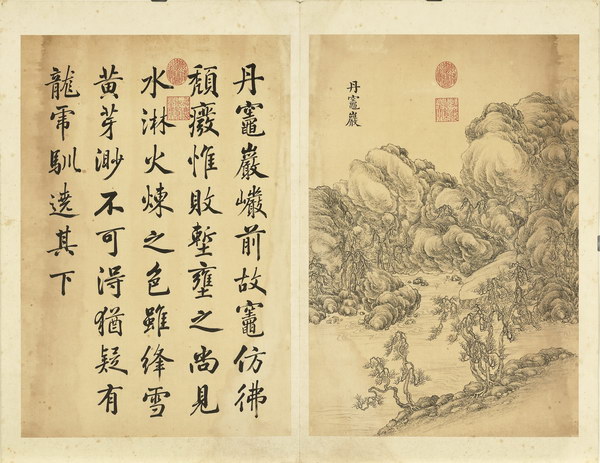 丹竈巖
丹竈巖巖前故竈仿彿
頹癈惟敗塹壅之尚見
水淋火煉之色雖絳雪
黄芽渺不可得猶疑有
龍虎馴遶其下